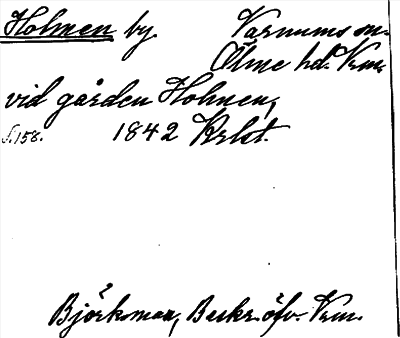 Holmen by. Varnums sn.
Ölme hd. Vrm.
vid gården Holmen,
s. 158. 1842 Krlst.
Björkman, Beskr. öfv. Vrm.